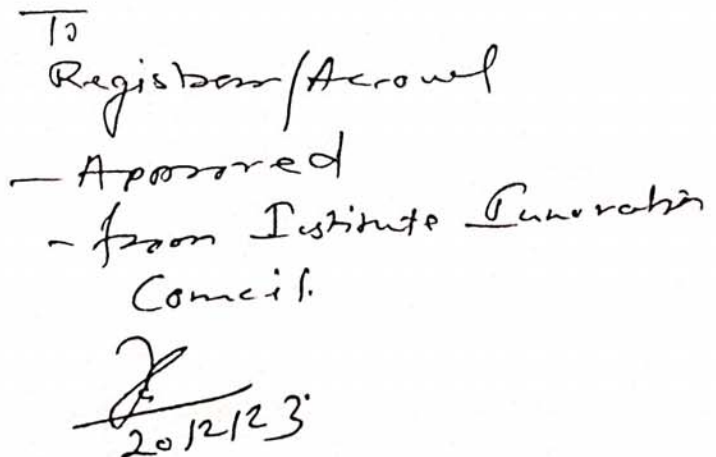 To
Registrar/Account
- Approved
- from Institute Innovation
Council.
20/2/23